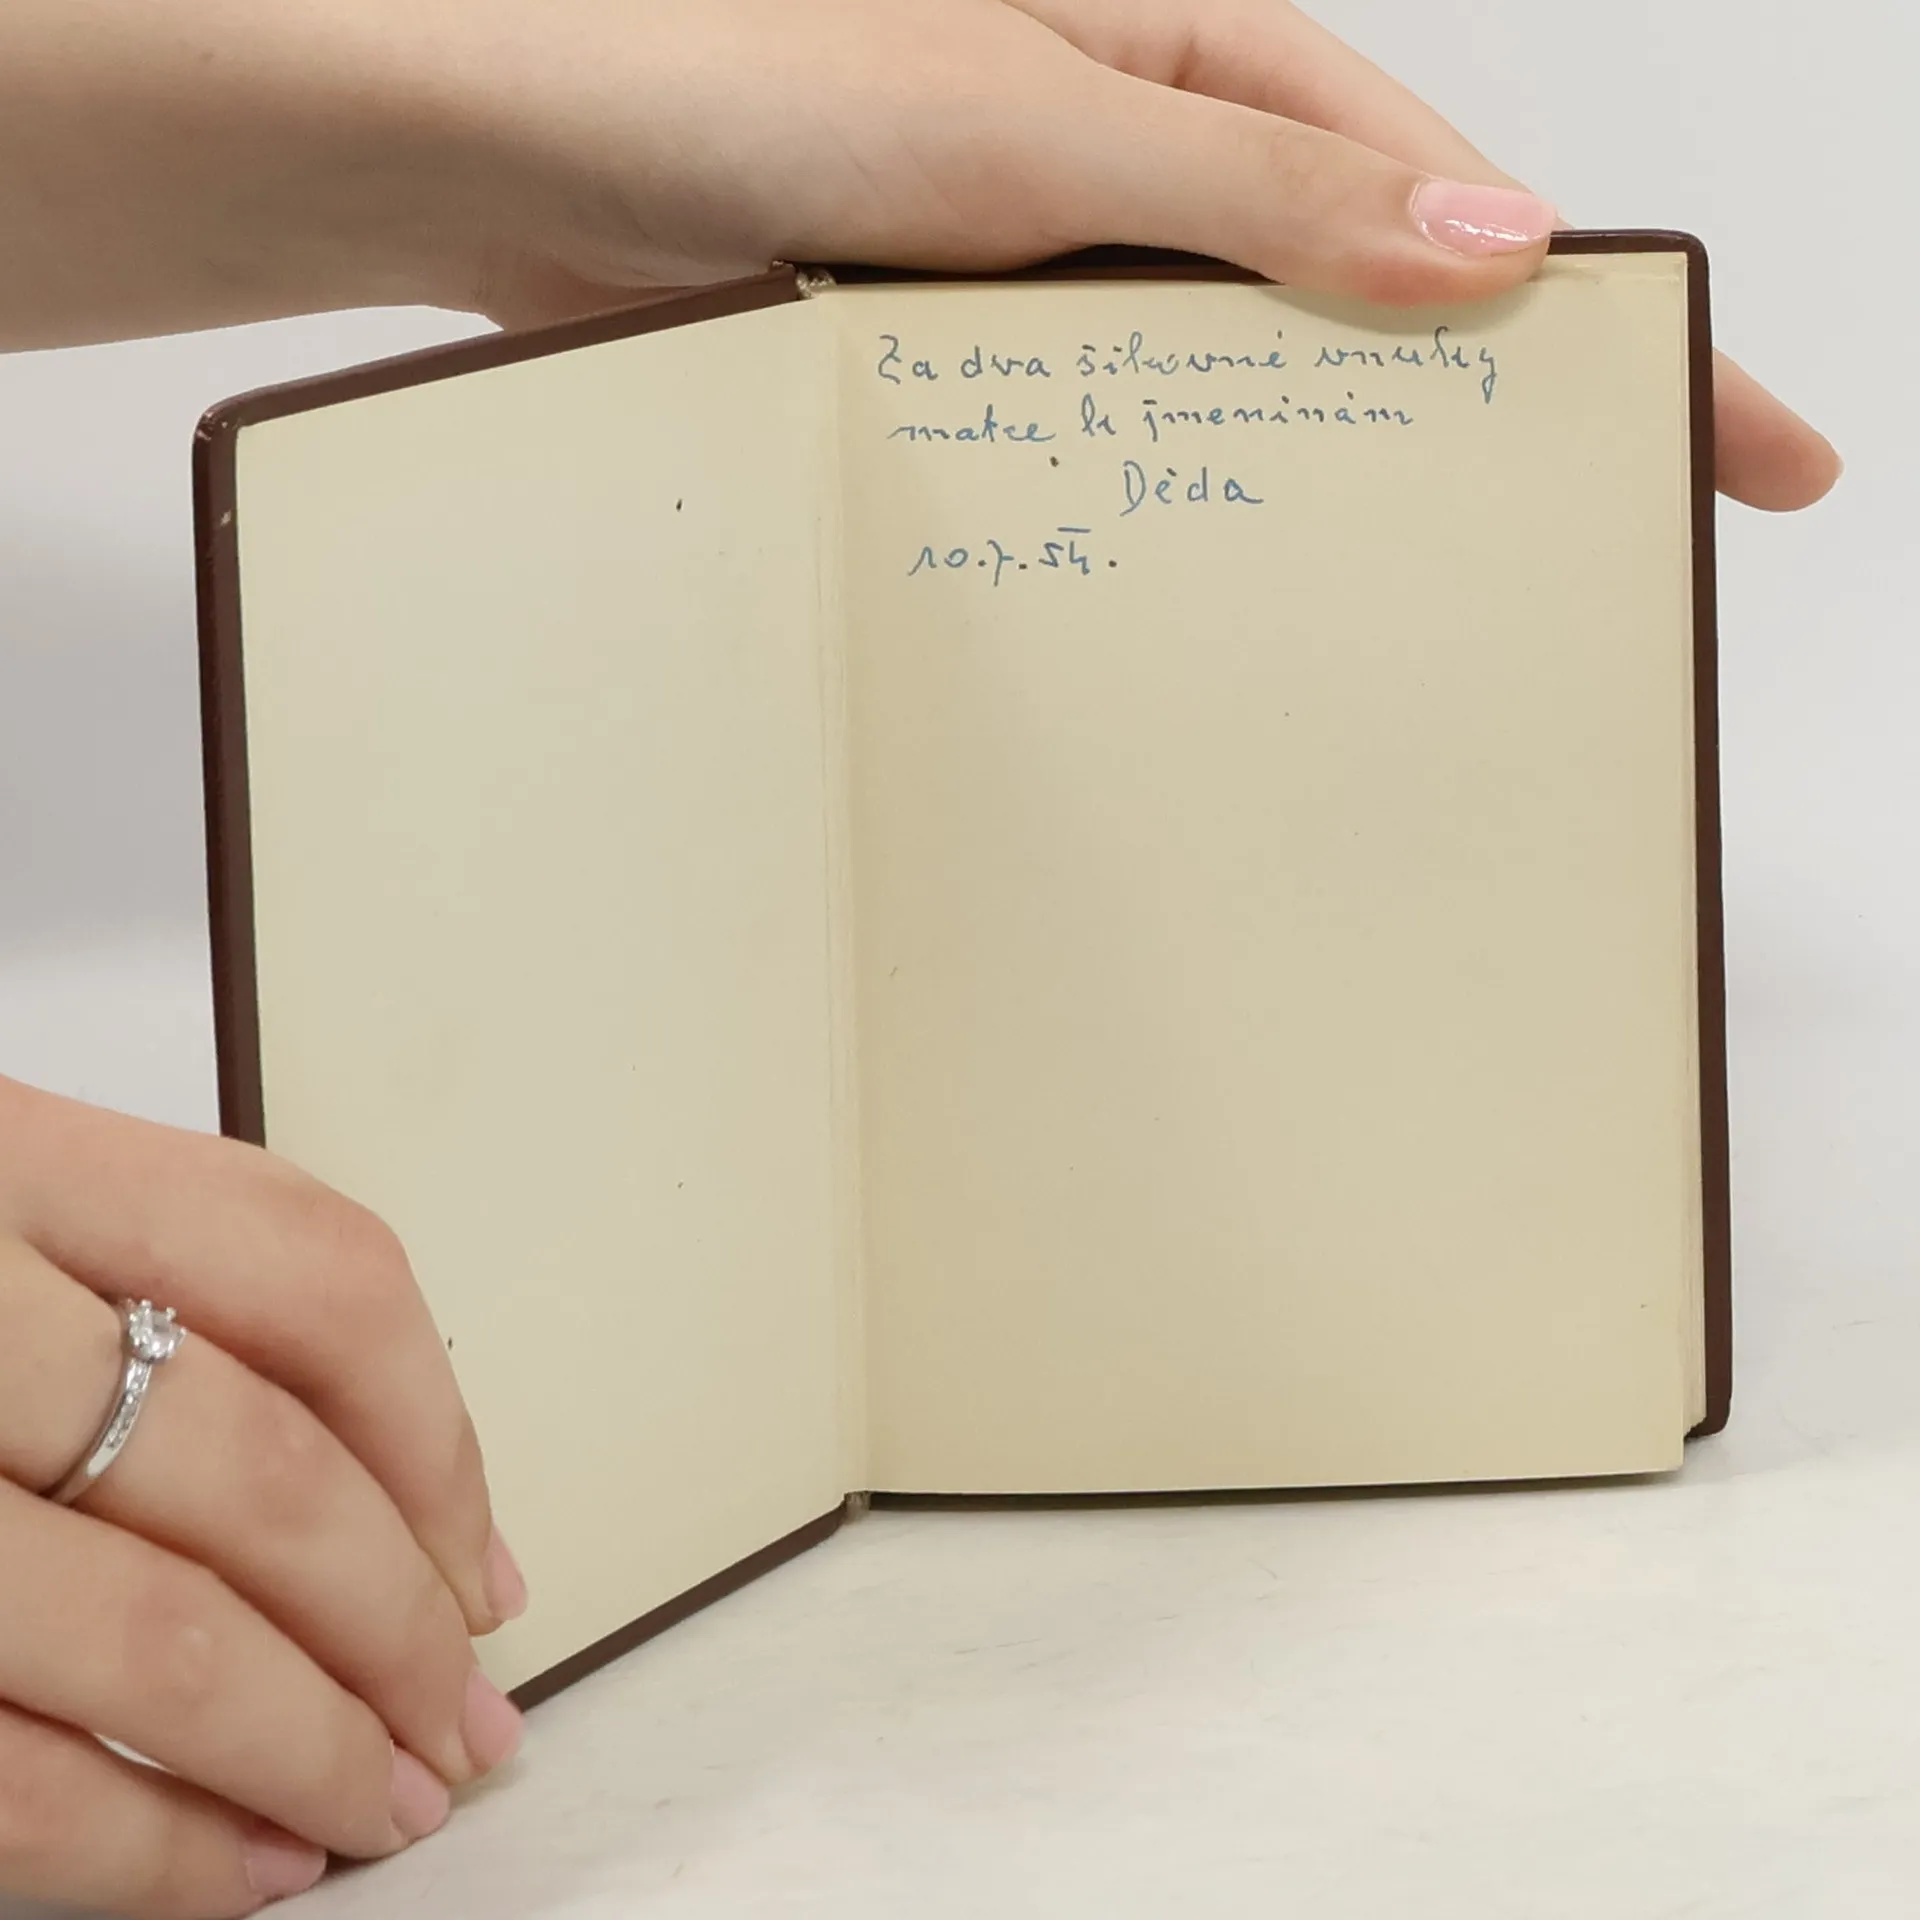 Za dva šikovné vnuky
matce k jmeninám
Děda
10.7.54.